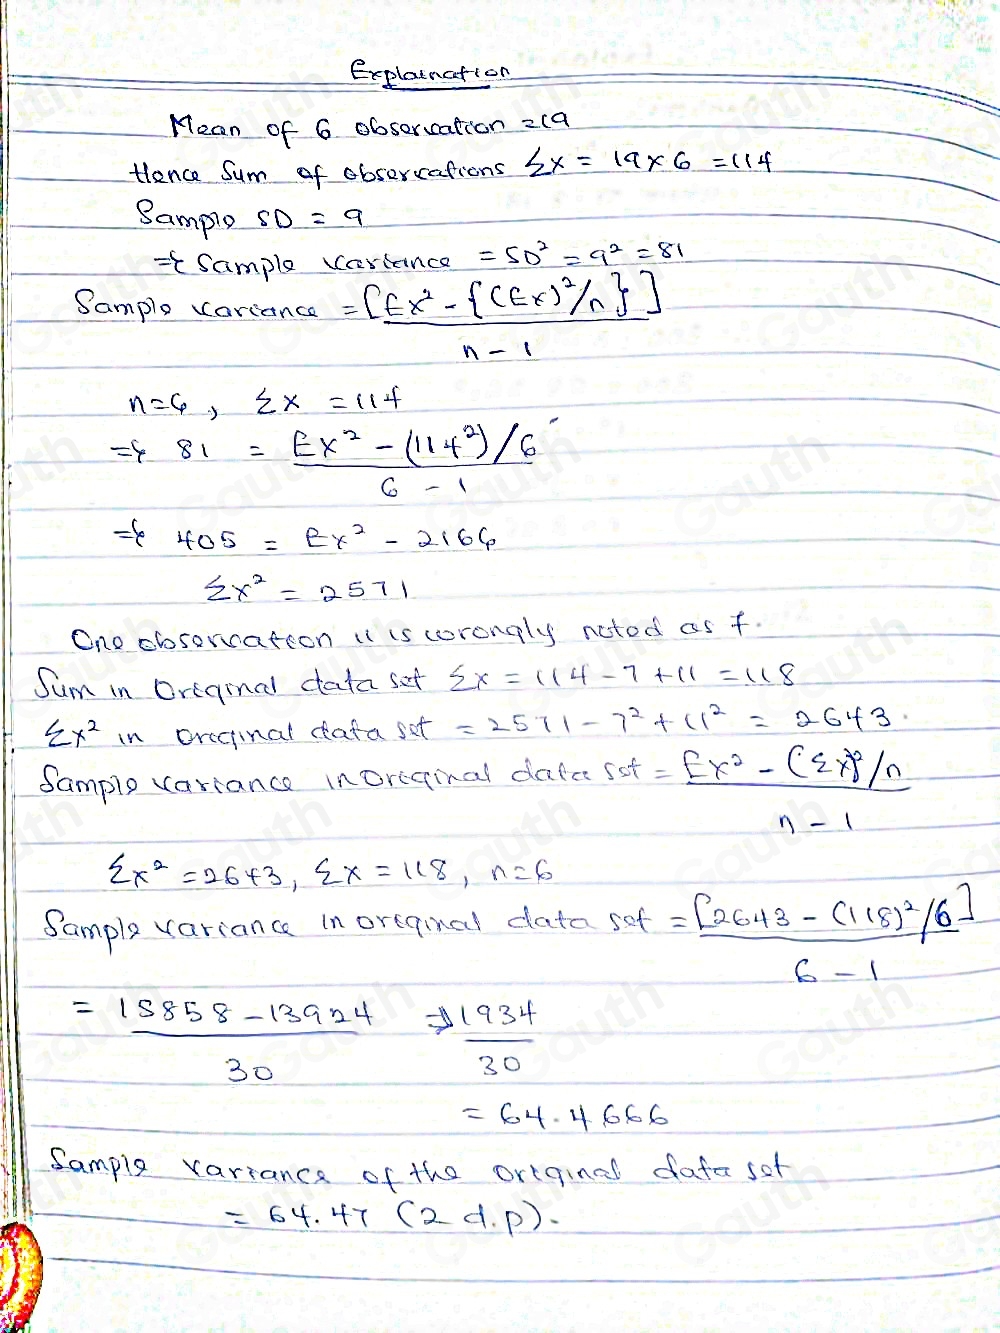 Explaination
Mean of 6 observation = 19
Hence Sum of observations Σx = 19 x 6 = 114
Sample SD = 9
=> Sample variance = SD² = 9² = 81
Sample variance = [Σx² - {(Σx)²/n}]
n - 1
n = 6, Σx = 114
=> 81 = Σx² - (114²)/6
6 - 1
=> 405 = Σx² - 2166
Σx² = 2571
One observation 11 is wrongly noted as 7.
Sum in Original data set Σx = 114 - 7 + 11 = 118
Σx² in original data set = 2571 - 7² + 11² = 2643.
Sample variance in original data set = Σx² - (Σx)²/n
n - 1
Σx² = 2643, Σx = 118, n = 6
Sample variance in original data set = [2643 - (118)²/6]
6 - 1
= 15858 - 13924 => 1934
30 30
= 64.4666
Sample variance of the original data set
= 64.47 (2 d.p).